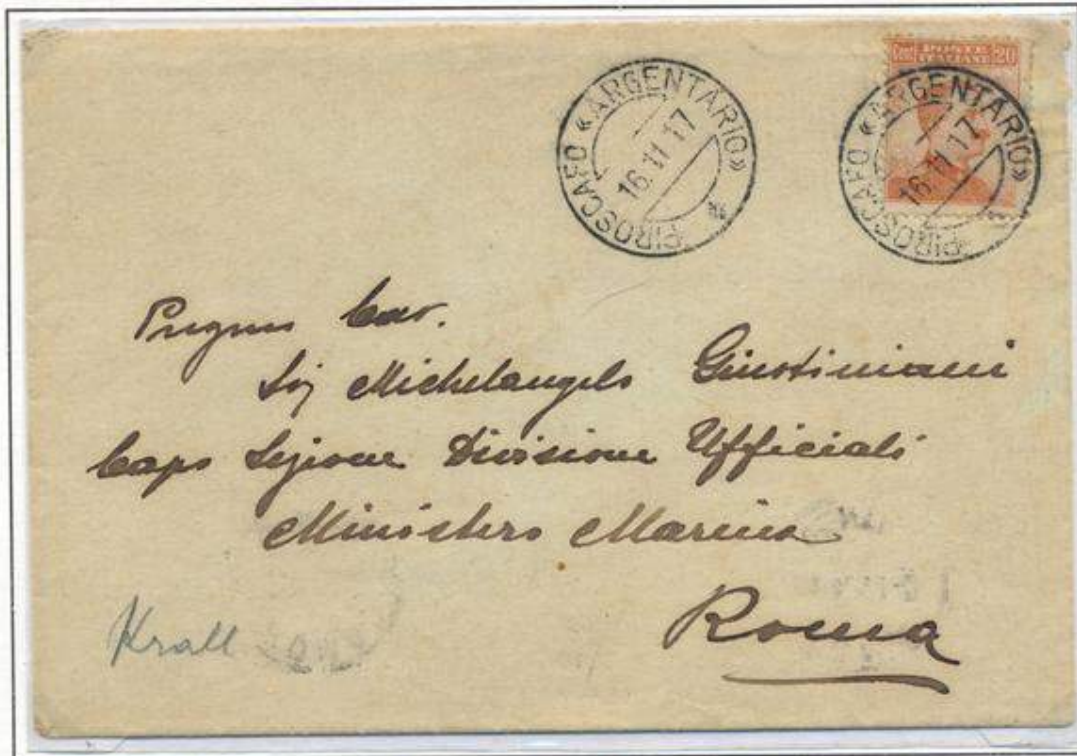 PIROSCAFO «ARGENTARIO» *
16.11.17
Cent POSTE ITALIANE 20
PIROSCAFO «ARGENTARIO»
16.11.17
Pregmo Cav.
Sig Michelangelo Giustiniani
Capo Sezione Divisione Ufficiali
Ministero Marina
Roma
Krall